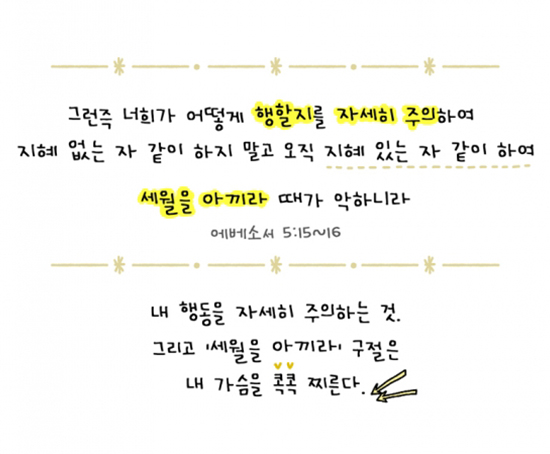 그런즉 너희가 어떻게 행할지를 자세히 주의하여
지혜 없는 자 같이 하지 말고 오직 지혜 있는 자 같이 하여
세월을 아끼라 때가 악하니라
에베소서 5:15~16
내 행동을 자세히 주의하는 것.
그리고 '세월을 아끼라' 구절은
내 가슴을 콕콕 찌른다.